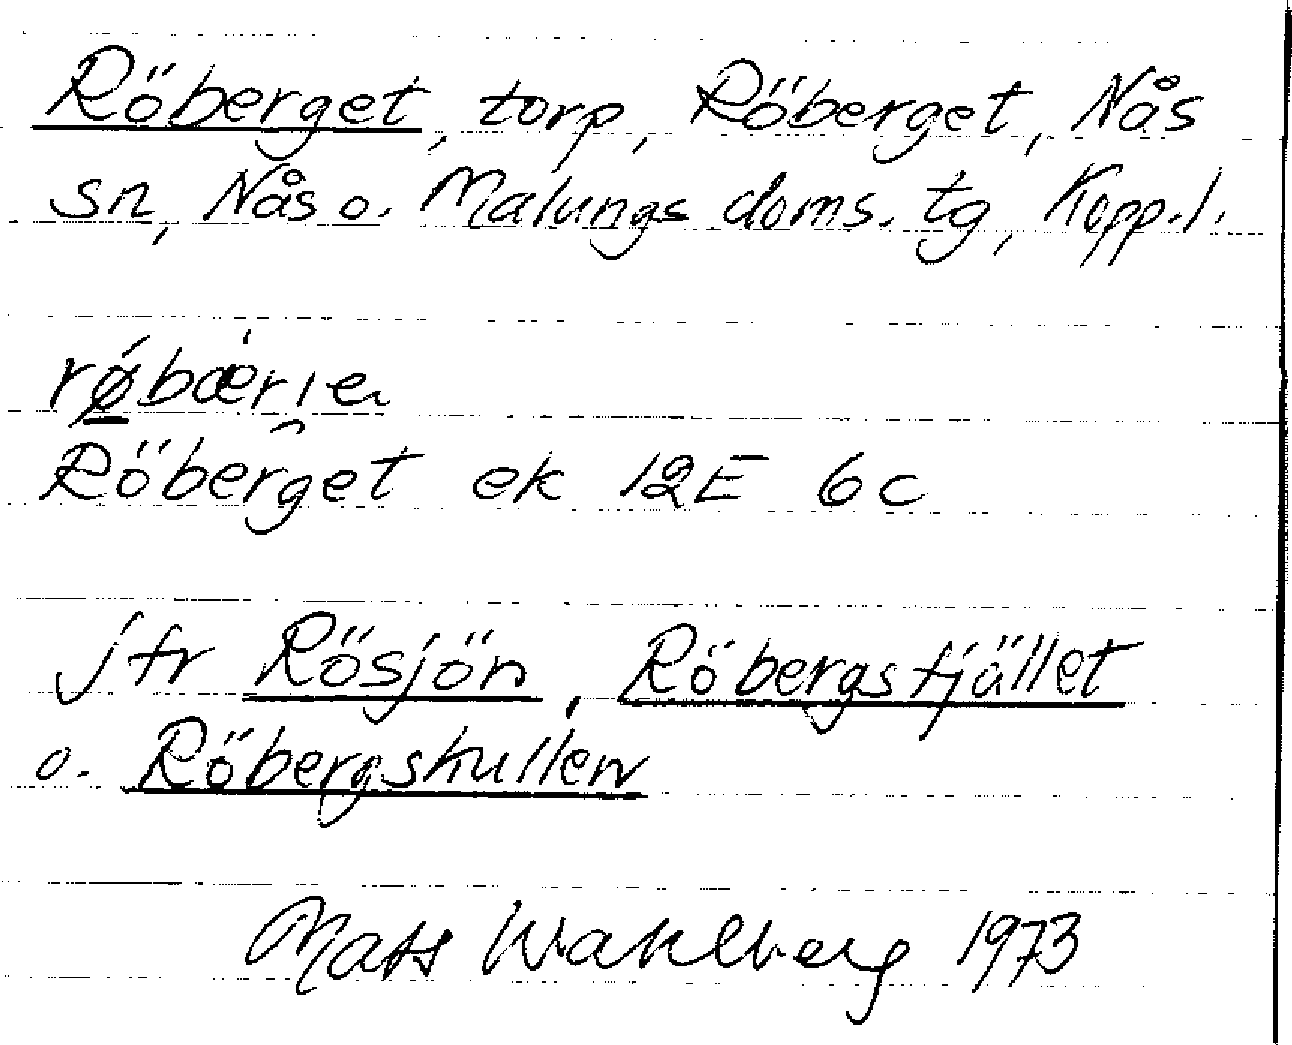 Röberget, torp, Röberget, Nås
sn, Nås o. Malungs doms. tg, Kopp.l.
rǿ̲bæ̀ri̯en
Röberget ek 12E 6c
jfr Rösjön, Röbergsfjället
o. Röbergskullen
Mats Wahlberg 1973